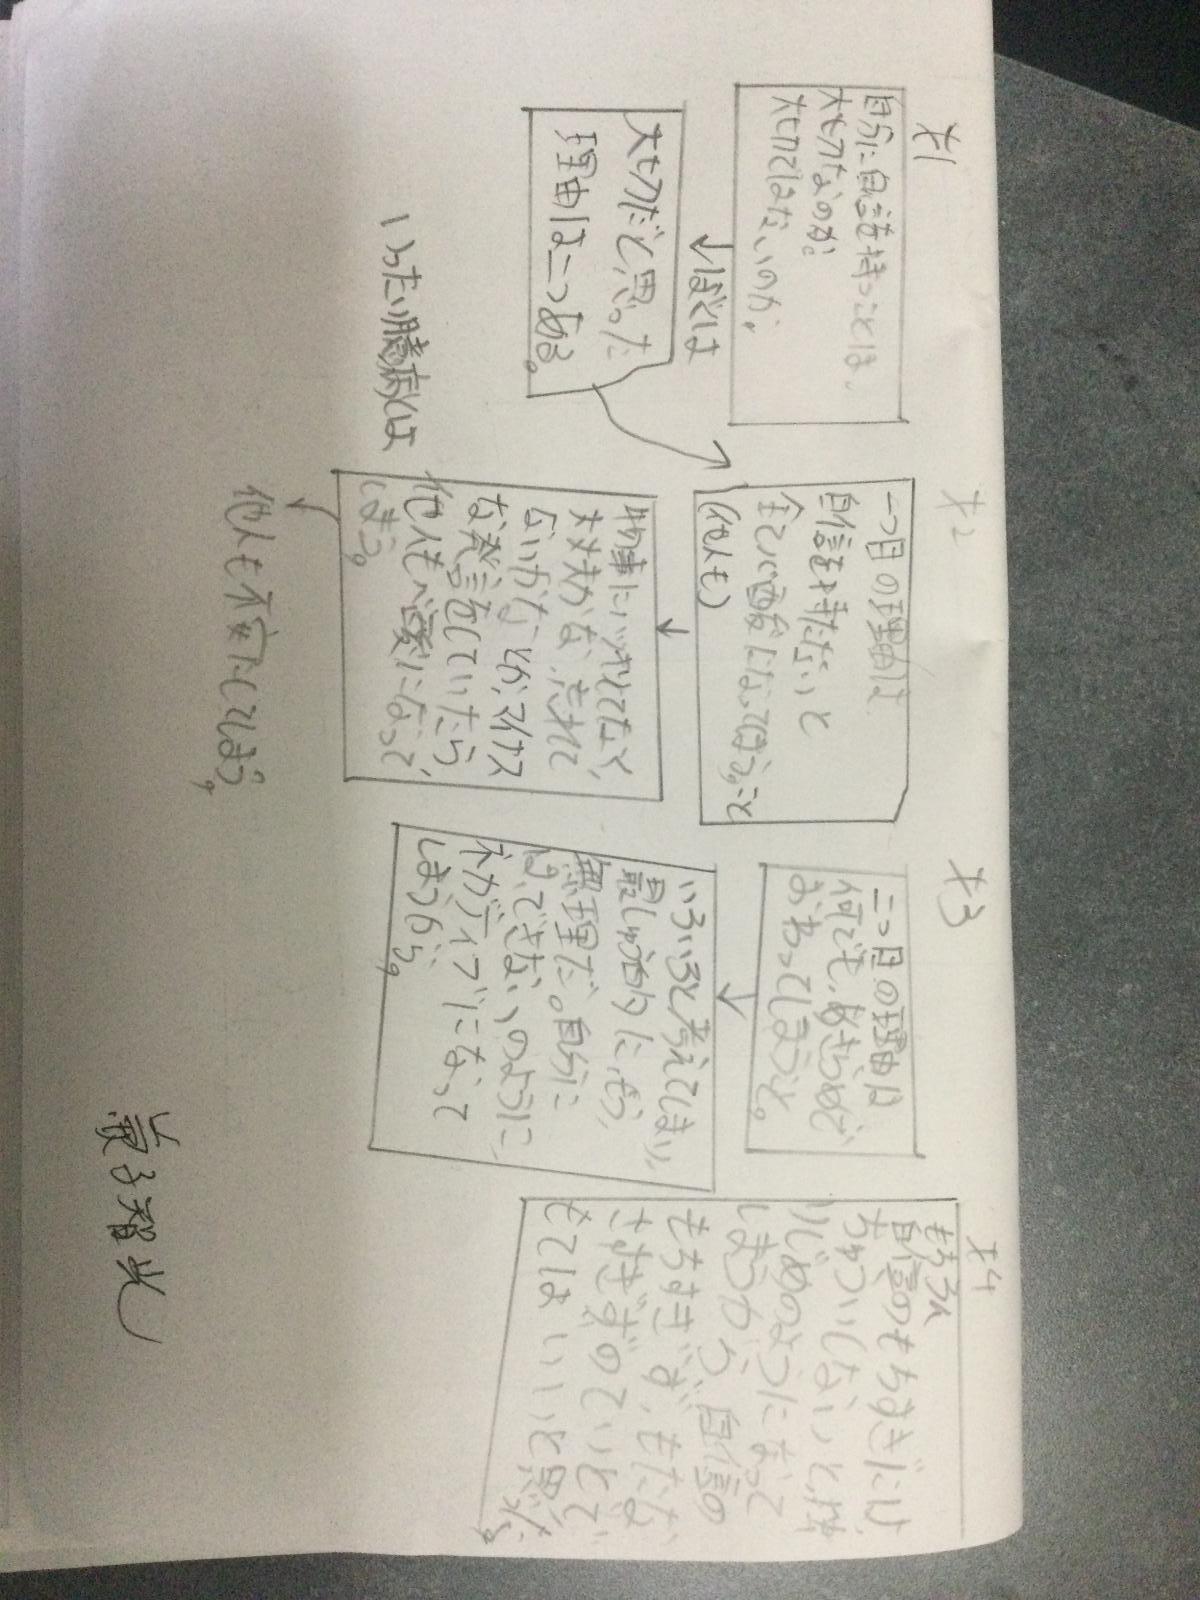 才1
自分に自信を持つことは、
大切なのか。
大切ではないのか。
ぼくは
大切だと思った
理由は二つある。
いったい臆病とは
才2
一つ目の理由は
自信を持たないと
なってしまうこと
(他人も)
物事にいつまでなく、
大丈夫かな、忘れて
ないかな、とか、マイナス
な発言をしていたら
他人も不安になって
しまう。
他人も不安にしてしまう。
才3
二つ目の理由は
何でも、あきらめで
おわってしまうこと。
いろいろと考えてしまい、
最しゅう的に、もう
無理だ。自分に
は、できないのように、
ネガティブになって
しまうから。
才4
もちろん
自信のもちすぎには
ちゅういしないと、
いじめのようになって
しまうから、自信の
もちすぎず、もたな
さすぎずのていどで
もてばいいと思った。